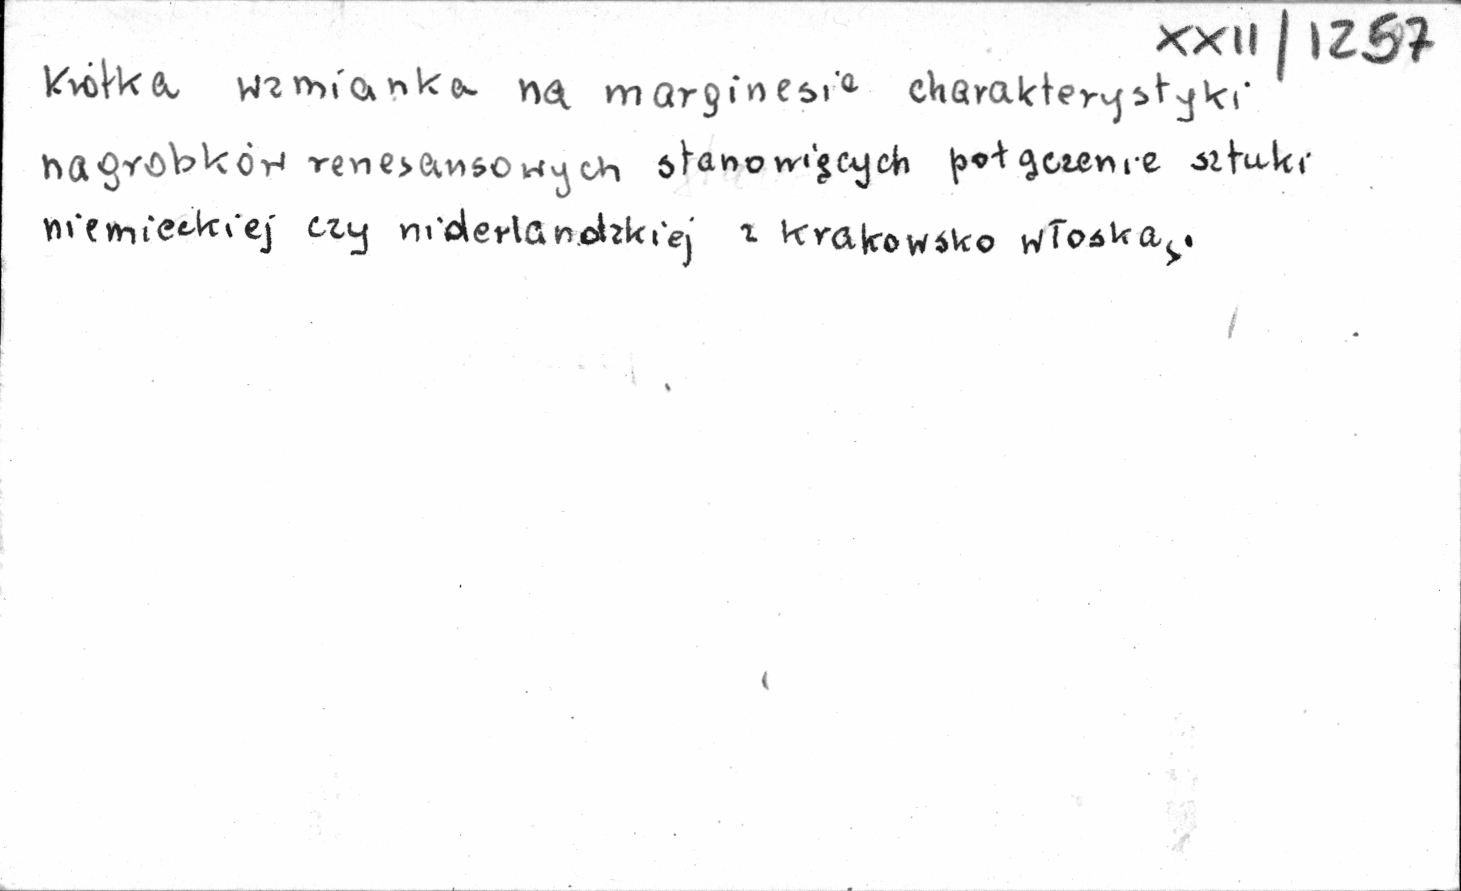 XXII/1257
Krótka wzmianka na marginesie charakterystyki
nagrobków renesansowych stanowiących połączenie sztuki
niemieckiej czy niderlandzkiej z krakowsko włoską.